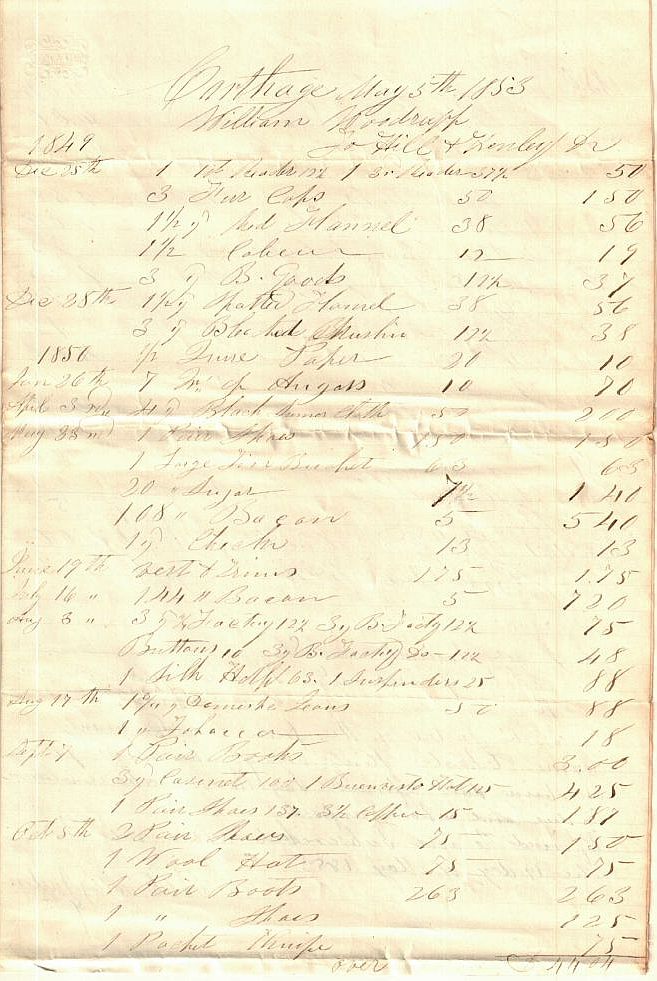 Carthage May 5th 1853
William Woodrupp
To Hill & Henley Dr
1849
Dec 25th 1 1st Reader 12½ 1 3r Reader 37½ 50
3 Fur Caps 50 1 50
1½ y Red Flannel 38 56
1½ 12 19
3 y B. Goods 12½ 37
Dec 28th 1½ y Flannel 38 56
3 y Bleached Muslin 12½ 38
1850 ½ Paper 20 10
Jan 26th 7 10 70
April 3rd 4 y Black Cloth 50 2 00
May 1 Pair Shoes 1 50 1 50
1 Large Bucket 63 63
20 " Sugar 7 1 40
108 " Bacon 5 5 40
1 y Check 13 13
June 19th Vest & Trims 175 1.75
July 16 " 144 " Bacon 5 7 20
Aug 3 " 3 y Factry 12½ 3 y B. Facty 12½ 75
Buttons 10 3 y B. Factry Do - 12½ 48
1 Silk Hdkf 63. 1 Suspenders 25 88
Aug 17th y Domestic 50 88
1 Tobacco 18
Sept 7 1 Pair Boots 3.00
3 y Casinet 100 1 Hat 125 4 25
1 Pair Shoes 137. 3½ Coffee 15 1.87
Oct 5th 2 Pair Shoes 75 1 50
1 Wool Hat 75 75
1 Pair Boots 263 2 63
1 " Shoes 1 25
1 Pocket Knife 75
over 44 04